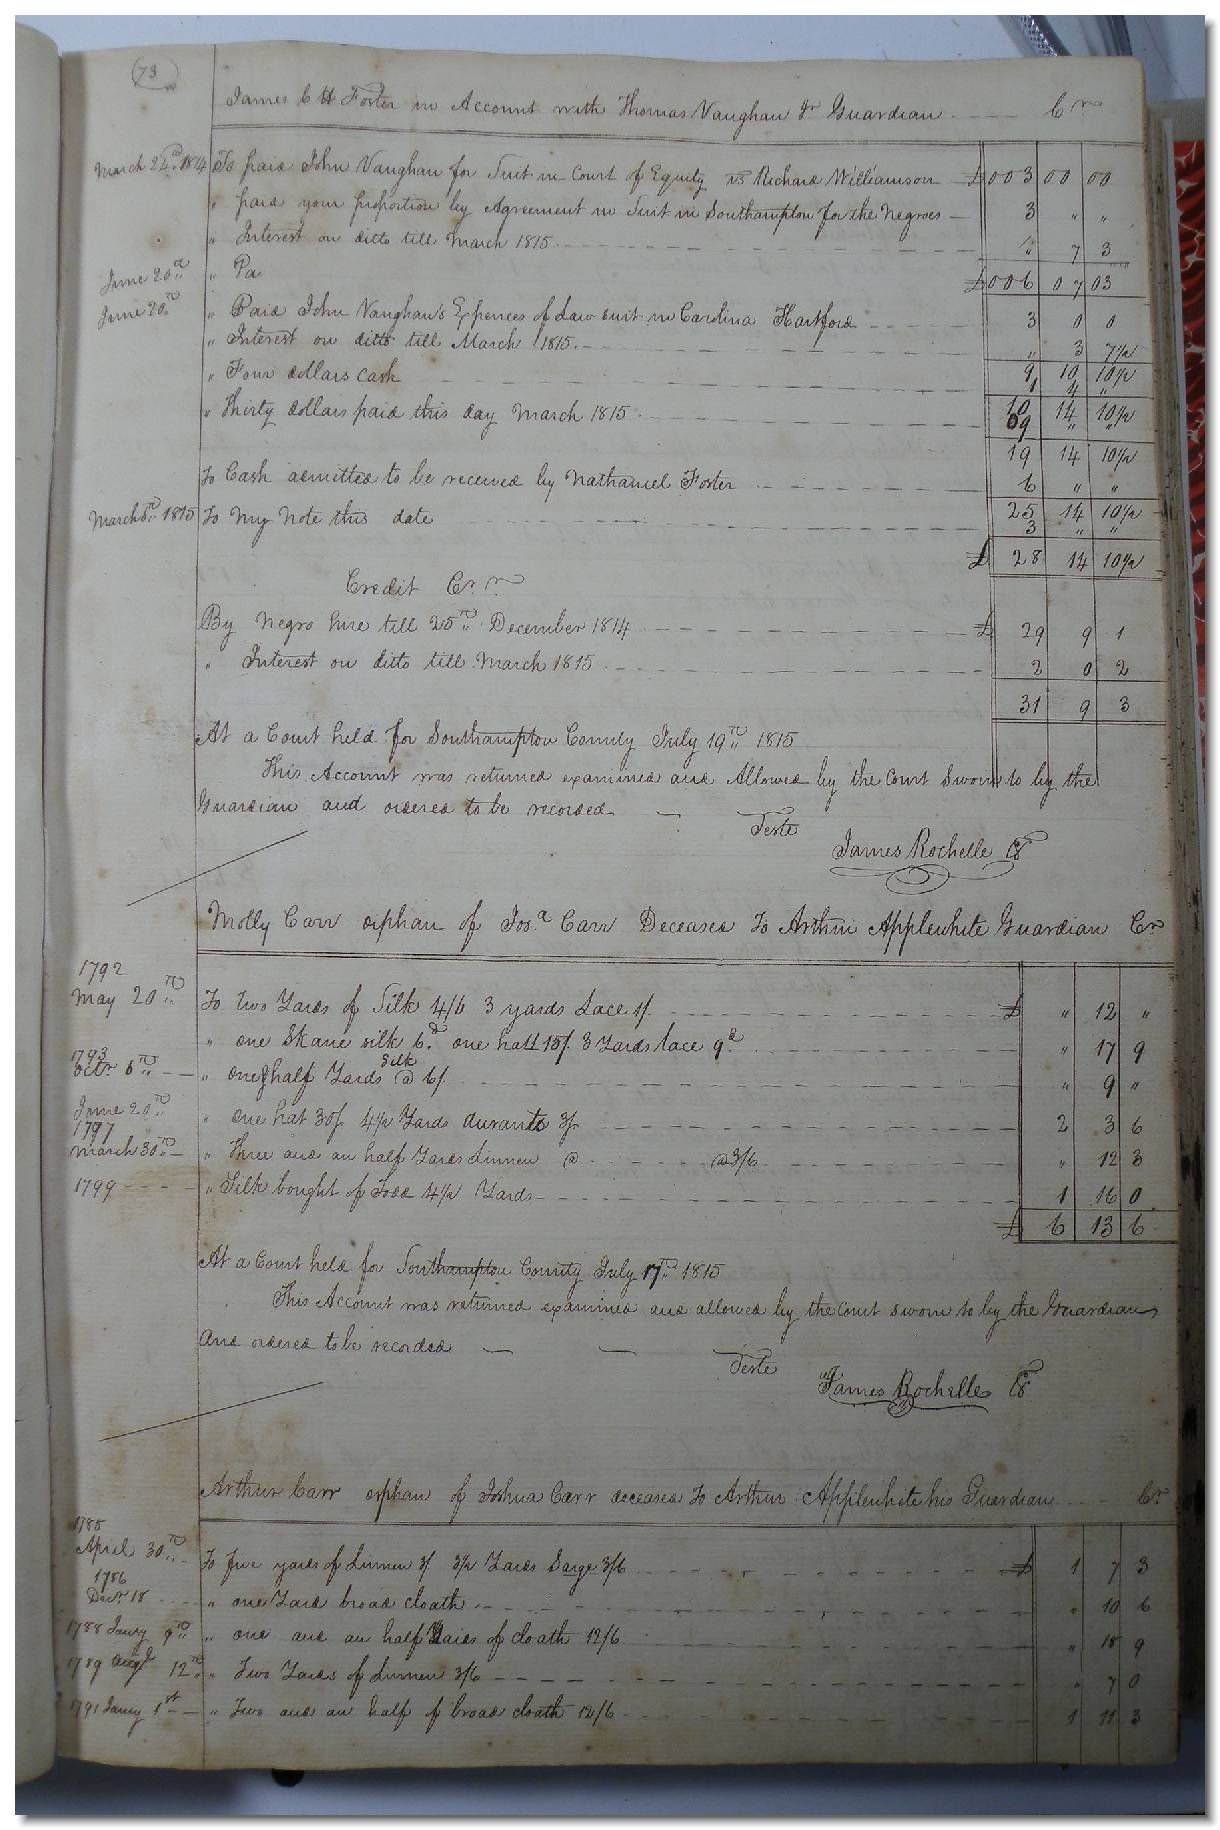 73
James C H Foster in Account with Thomas Vaughan Jr Guardian Cr
March 26th 1814 To paid John Vaughan for Suit in Court of Equity vs Richard Williamson £003 00 00
" paid your proportion by Agreement in Suit in Southampton for the Negroes 3 " "
" Interest on ditto till March 1815 " 7 3
June 20th " Pa £006 07 03
June 20th " Paid John Vaughan's Expences of Law suit in Carolina Hartford 3 0 0
" Interest on ditto till March 1815 " 3 7½
9 10 10½
" Four dollars cash 1 4 "
10 14 10½
" Thirty dollars paid this day March 1815 09 " "
19 14 10½
To Cash admitted to be received by Nathaniel Foster 6 " "
25 14 10½
March 8th 1815 To My Note this date 3 " "
£ 28 14 10½
Credit Cr
By Negro hire till 25th December 1814 £ 29 9 1
" Interest on ditto till March 1815 2 0 2
31 9 3
At a Court held for Southampton County July 19th 1815
This Account was returned examined and Allowed by the Court Sworn to by the
Guardian and ordered to be recorded
Teste
James Rochelle C
Molly Carr orphan of Josa Carr Deceased To Arthur Applewhite Guardian Cr
1792
May 20th To two Yards of Silk 4/6 3 yards Lace 1/. £ " 12 "
" one Skane silk 6d one hatt 15/. 3 Yards lace 9d " 17 9
1793
Octr 6th " one & half Yards Silk @ 6/. " 9 "
June 20th " one hat 30/. 4½ Yards durants 3/. 2 3 6
1797
March 30th " Three and an half Yards Linnen @ @3/6 " 12 3
1799 " Silk bought of Todd 4½ Yards 1 16 0
£ 6 13 6
At a Court held for Southampton County July 17th 1815
This Account was returned examined and allowed by the Court sworn to by the Guardian
And ordered to be recorded
Teste
James Rochelle C
Arthur Carr orphan of Joshua Carr deceased To Arthur Applewhite his Guardian Cr
1785
April 30th To five yards of Linnen 3/ 3½ Yards Sarge 3/6 £ 1 7 3
1786
Decr 18 " one Yard broad cloath " 10 6
1788 Jany 9th " one and an half Yards of cloath 12/6 " 18 9
1789 Augt 12th " Two Yards of Linnen 3/6 " 7 0
1791 Jany 1st " Two and an half of broad cloath 12/6 1 11 3